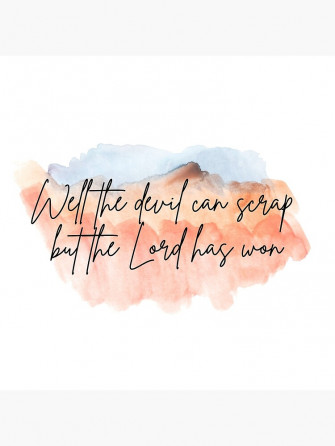 Well the devil can scrap
but the Lord has won